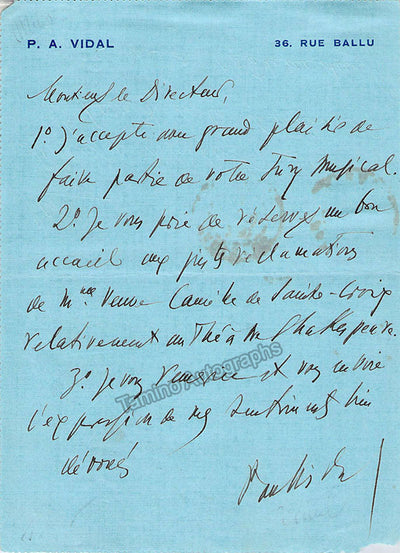 P. A. VIDAL
36. RUE BALLU
Monsieur le Directeur,
1º. J'accepte avec grand plaisir de
faire partie de votre Jury Musical.
2º. Je vous prie de réserver un bon
accueil aux justes réclamations
de Mme Veuve Camille de Sainte-Croix
relativement au Théâtre Shakespeare.
3º. Je vous remercie et vous envoie
l'expression de mes sentiments bien
dévoués
Paul Vidal
Tamino Autographs